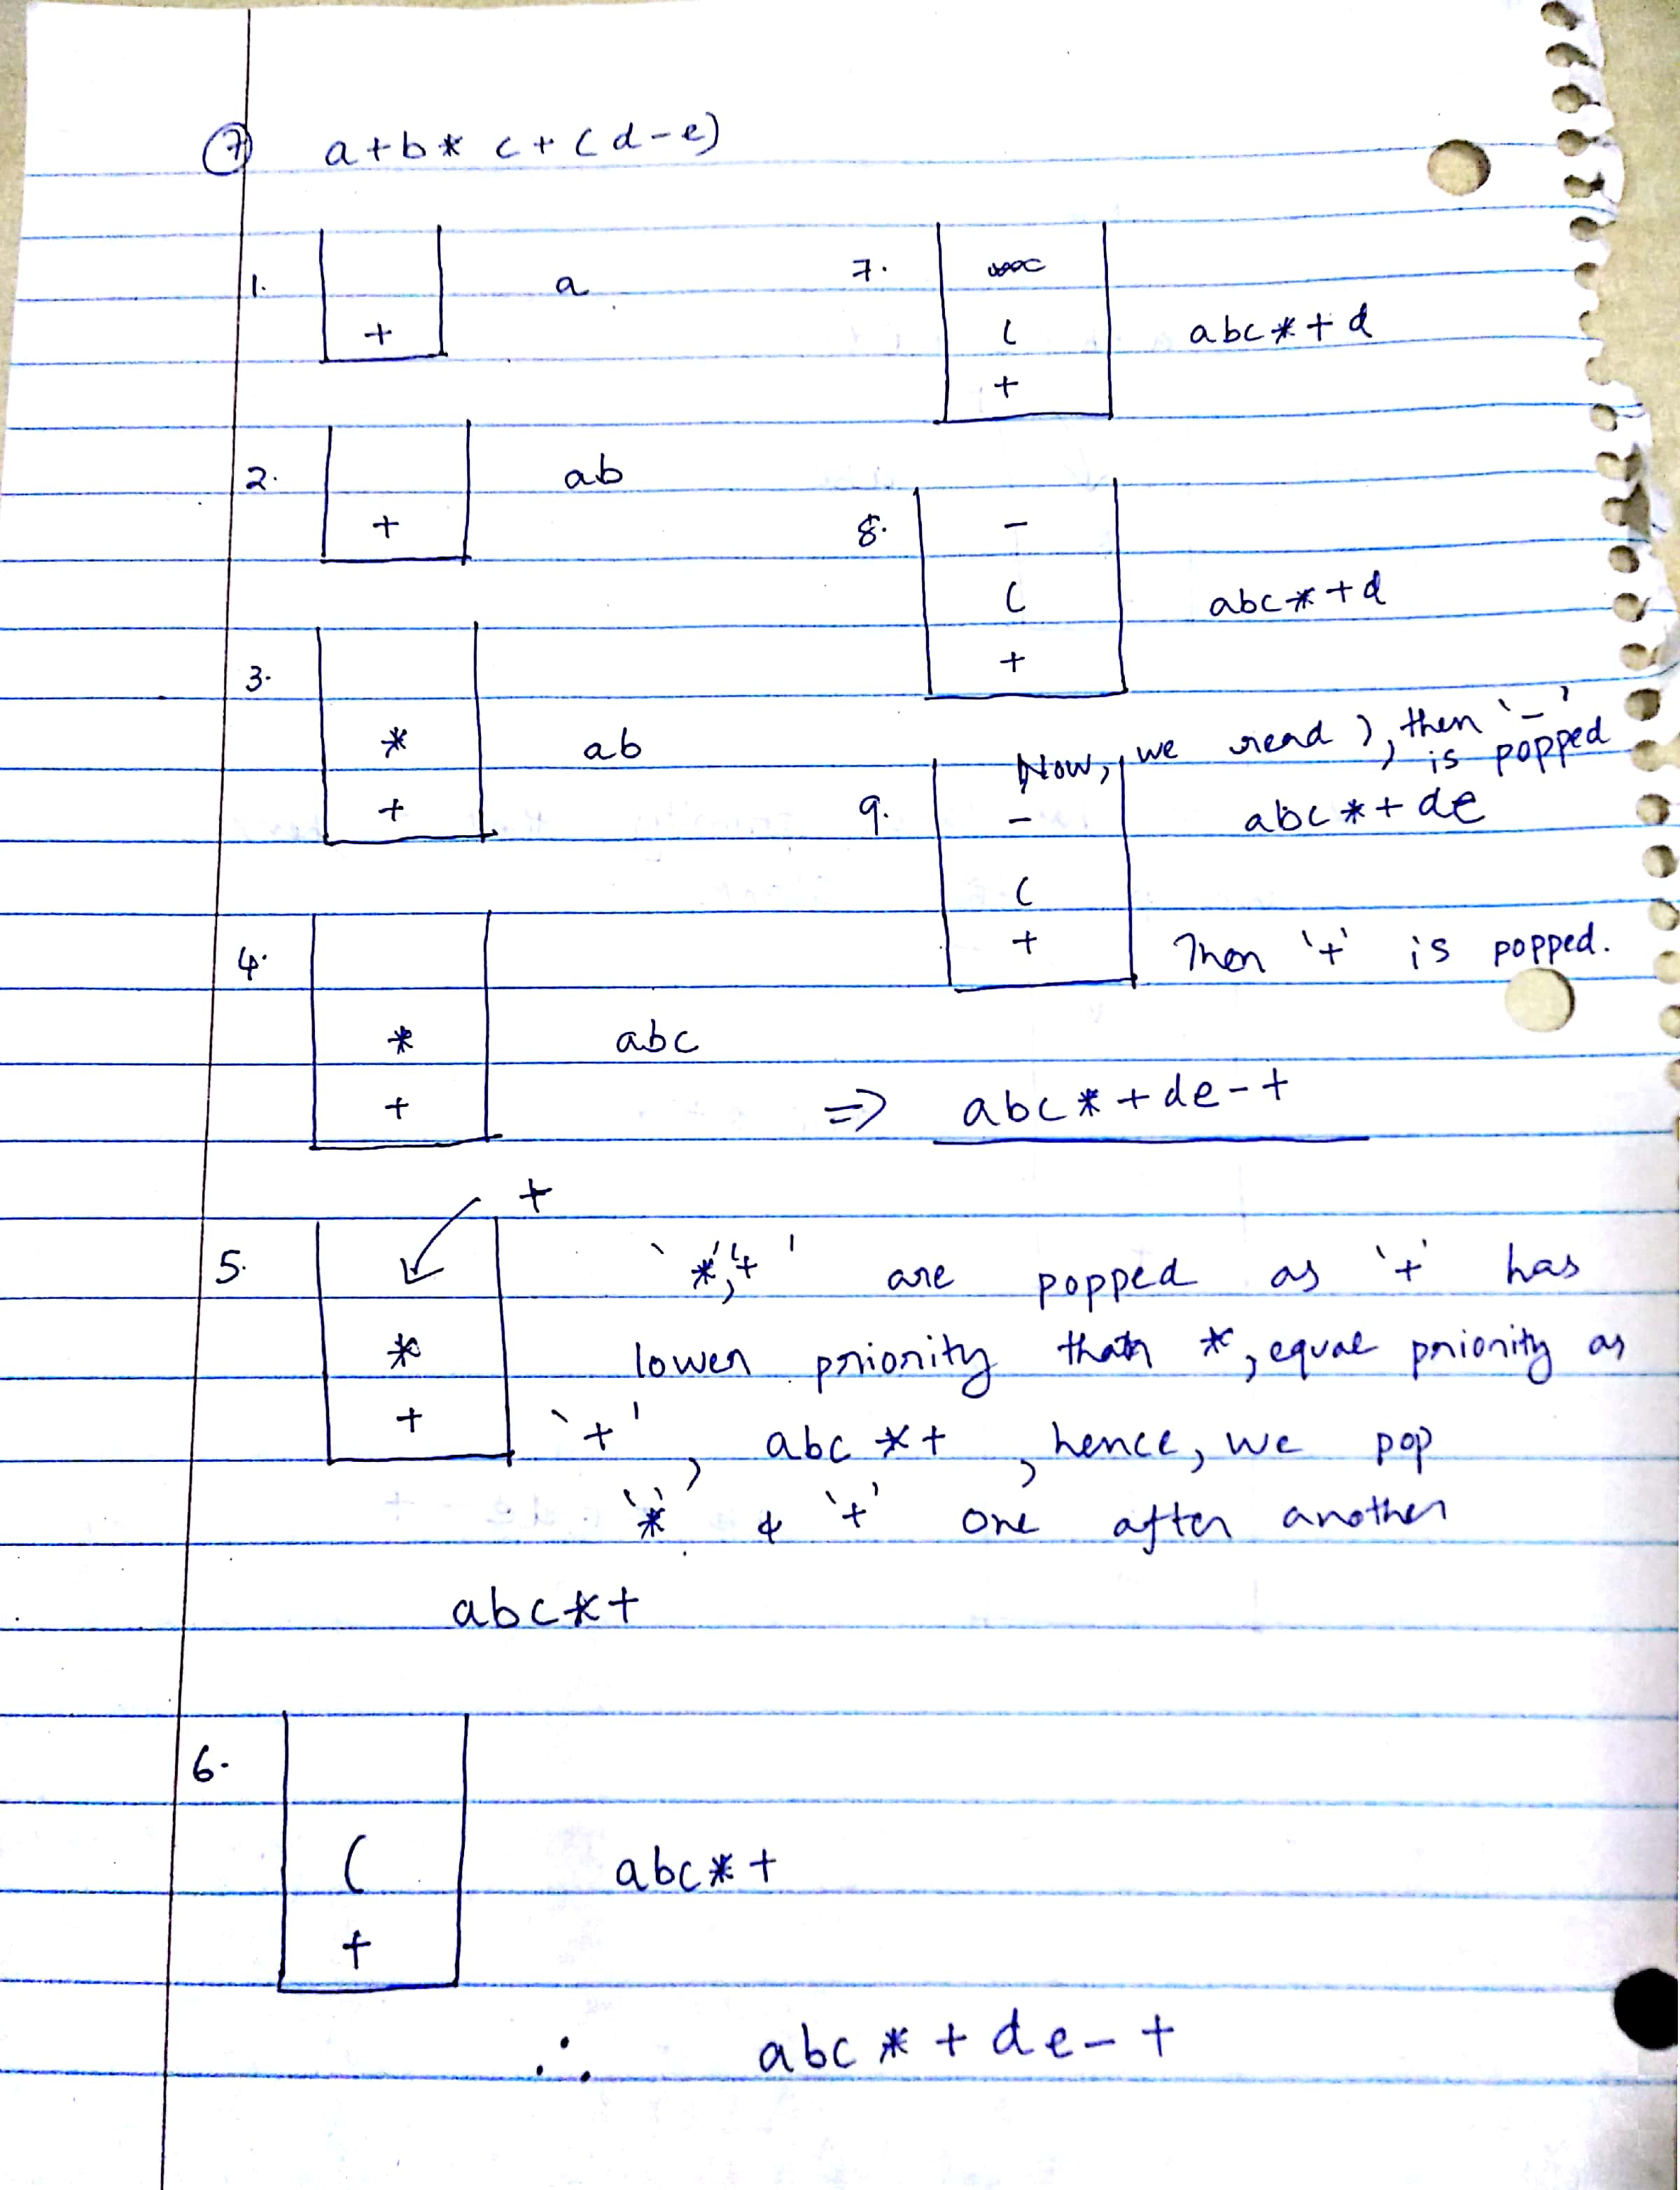 7 a+b* c+(d-e)
1. a
+
2. ab
+
3.
* ab
+
4.
* abc
+
+
5. '*','+' are popped as '+' has
* lower priority than *, equal priority as
+ '+', abc *+, hence, we pop
'*' & '+' one after another
abc*+
6.
( abc*+
+
7.
( abc*+d
+
8. -
( abc*+d
+
Now, we read ), then '-'
is popped
9. - abc*+de
(
+ Then '+' is popped.
=> abc*+de-+
∴ abc*+de-+